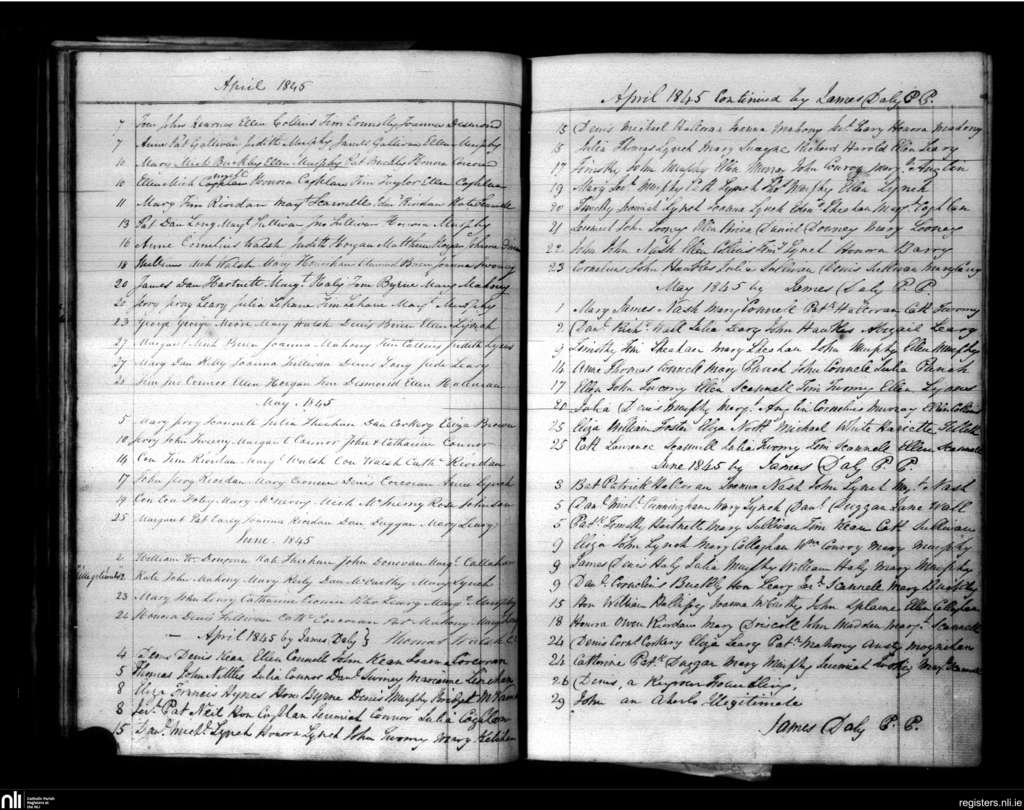 April 1845
7 John Kearnes Ellen Collins Tim Connolly Joanna Desmond
7 Anne Pat Gallivan Judith Murphy James Gallivan Ellen Murphy
10 Mary Mich Buckley Ellen Murphy Pat Buckley Honora Corcoran
10 Ellen Mich Coghlan Honora Coghlan Tim Taylor Ellen Coghlan
11 Mary Tim Riordan Mary Scannell Riordan Kate Scannell
13 Pat Dan Long Margt Sullivan Jno Sullivan Honora Murphy
16 Anne Cornelius Walsh Judith Horgan Matthew Horgan
18 William Mich Walsh Mary Hourihan Edmond Brien Joanna Twomy
20 James Dan Hartnett Margt. Healy Tom Byrne Mary Mahony
20 Jerry Jerry Leary Julia Lehane Tim Lehane Margt. Murphy
23 George George Moore Mary Walsh Denis Brien Ellen Lynch
27 Margaret Mich Brien Joanna Mahony Tim Collins Judith Lyons
27 Mary Dan Kelly Joanna Sullivan Denis Long Jude Leary
Connor Ellen Horgan Tim Desmond Ellen Halloran
May. 1845
5 Mary Jerry Scannell Julia Sheehan Dan Corkery Eliza Brown
10 Jerry John Twomy Margaret Connor John & Catharine Connor
14 Con Tim Riordan Mary Walsh Con Walsh Cath. Riordan
17 John Jerry Riordan Mary Cronin Denis Corcoran Anne Lynch
19 Con Con Foley Mary McSwiny Mich McSwiny Rose Johnson
25 Margaret Pat Carey Joanna Riordan Dan Duggan Mary Leary
June. 1845
2 William Wm Donovan Kate Sheehan John Donovan Margt. Callahan
Illegitimate Kate John Mahony Mary Kiely Dan McCarthy Mary Lynch
23 Mary John Leary Catharine Cronin Peter Leary Margt. Murphy
24 Honora Denis Sullivan Cath Corcoran Pat Mahony
— April 1845 by James Daly } Thomas Walsh
4 Denis Denis Kean Ellen Connell John Kean Joana Corcoran
5 Thomas John Nettles Julia Connor Danl. Murray Marianne
8 Eliza Francis Hynes Hon Byrne Denis Murphy Bridget
8 Jer. Pat Neil Hon Coghlan Jeremiah Connor Julia Coghlan
15 Danl. Michl. Lynch Honora Lynch John Twomy Mary Kelleher
April 1845 Continued by James Daly P.P.
15 Denis Michael Halloran Joanna Mahony Jer. Leary Honora Mahony
15 Julia Thomas Lynch Mary Swayne Richard Harold Ellen Leary
17 Timothy John Murphy Ellen Murray John Conroy Mary Anglin
19 Mary Jer. Murphy Cath Lynch Murphy Ellen Lynch
20 Timothy Jeremiah Lynch Joanna Lynch Edmd. Sheehan Margt. Coghlan
21 Jeremiah John Looney Ellen Brien Daniel Looney Mary Looney
22 John John Nash Ellen Collins Lynch Honora Barry
23 Cornelius John Hawkes Julia Sullivan Denis Sullivan Mary
May 1845 by James Daly P P
1 Mary James Nash Mary Connell Patk. Halloran Cath Twomy
2 Danl. Richd. Wall Julia Leary John Hawkes Abigail Leary
9 Timothy Tim Sheehan Mary Sheehan John Murphy Ellen Murphy
14 Anne Thomas Connell Mary John Connell Julia
17 Eliza John Twomy Ellen Scannell Tim Twomy Ellen Lyons
20 Julia Denis Murphy Mary Anglin Cornelius Murray Ellen Collins
25 Eliza William Foster Eliza Nott Michael White Harriette
25 Cath Laurence Scannell Julia Twomy Tim Scannell Ellen Scannell
June 1845 by James Daly P.P.
3 Bat Patrick Halloran Joanna Nash John Lynch Nash
5 Danl. Michl. Cunningham Mary Lynch Danl. Duggan Jane Wall
5 Patk. Timothy Hartnett Mary Sullivan Tim Kean Cath Sullivan
9 Eliza John Lynch Mary Callaghan Wm Conroy Mary Murphy
9 James Denis Haly Julia Murphy William Haly Mary Murphy
9 Danl. Cornelius Buckly Hon Leary Jer. Scannell Mary Buckly
15 Hon William Hallissy Joanna McCarthy John Splaine Ellen Callaghan
18 Honora Owen Riordan Mary Driscoll John Madden Mary Scannell
24 Denis Corns Corkery Eliza Leary Patk. Mahony Monahan
24 Catherine Patk. Duggan Mary Murphy Jeremiah Mary Scannell
26 Denis, a Foundling.
29 John an Illegitimate
James Daly P. P.
nli
Catholic Parish Registers at the NLI
registers.nli.ie